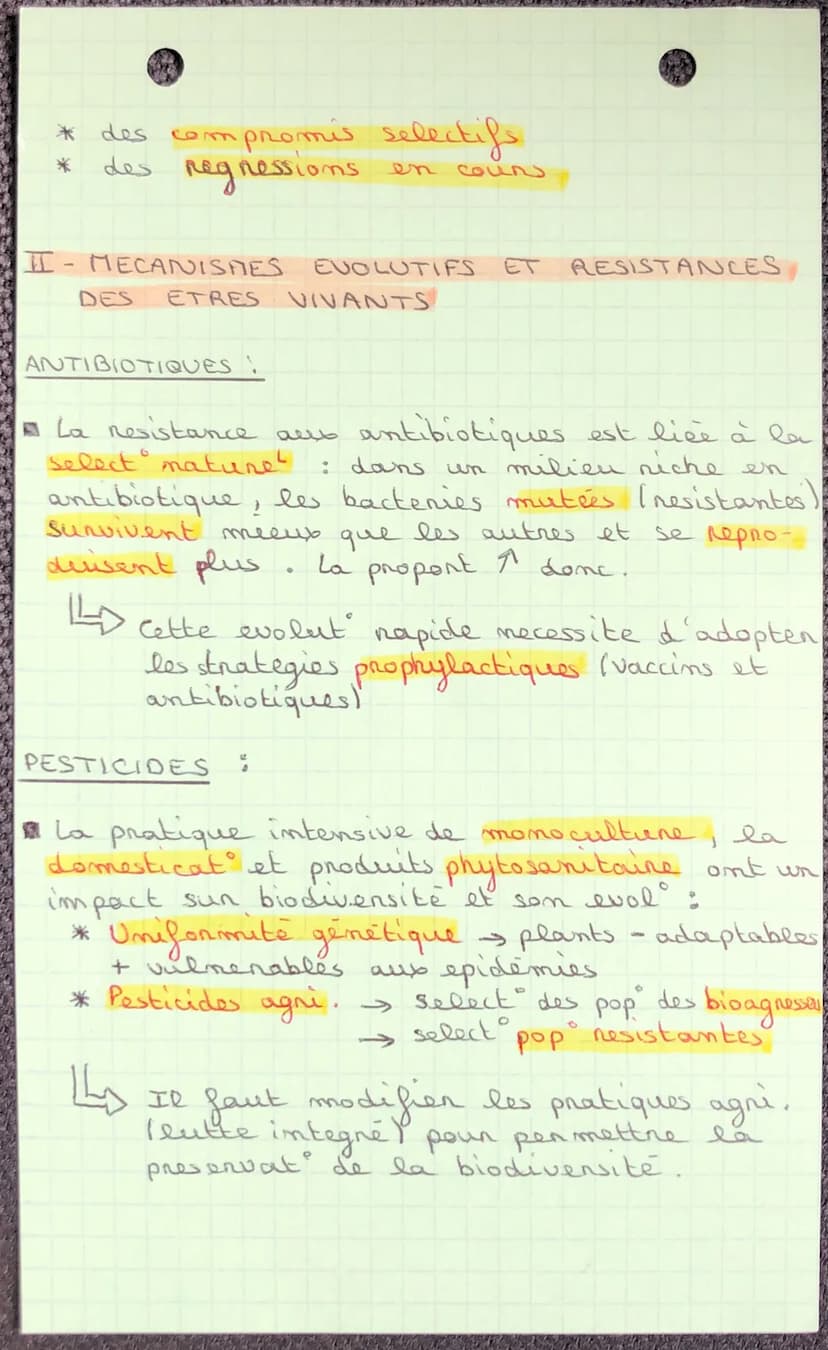 * des compromis selectifs
* des regressions en cours
II - MECANISMES EVOLUTIFS ET RESISTANCES
DES ETRES VIVANTS
ANTIBIOTIQUES :
▪ La resistance aux antibiotiques est liée à la
select° naturelle : dans un milieu riche en
antibiotique, les bacteries mutées (resistantes)
survivent mieux que les autres et se repro-
duisent plus. La proport ↑ donc.
↳ Cette evolut° rapide necessite d'adopter
les strategies prophylactiques (vaccins et
antibiotiques)
PESTICIDES :
▪ La pratique intensive de monoculture, la
domesticat° et produits phytosanitaire ont un
impact sur biodiversité et son evol° :
* Uniformité génétique → plants - adaptables
+ vulnerables aux epidémies
* Pesticides agri. → select° des pop° des bioagresseu
→ select° pop° resistantes
↳ Il faut modifier les pratiques agri.
(lutte integré) pour permettre la
preservat° de la biodiversité.